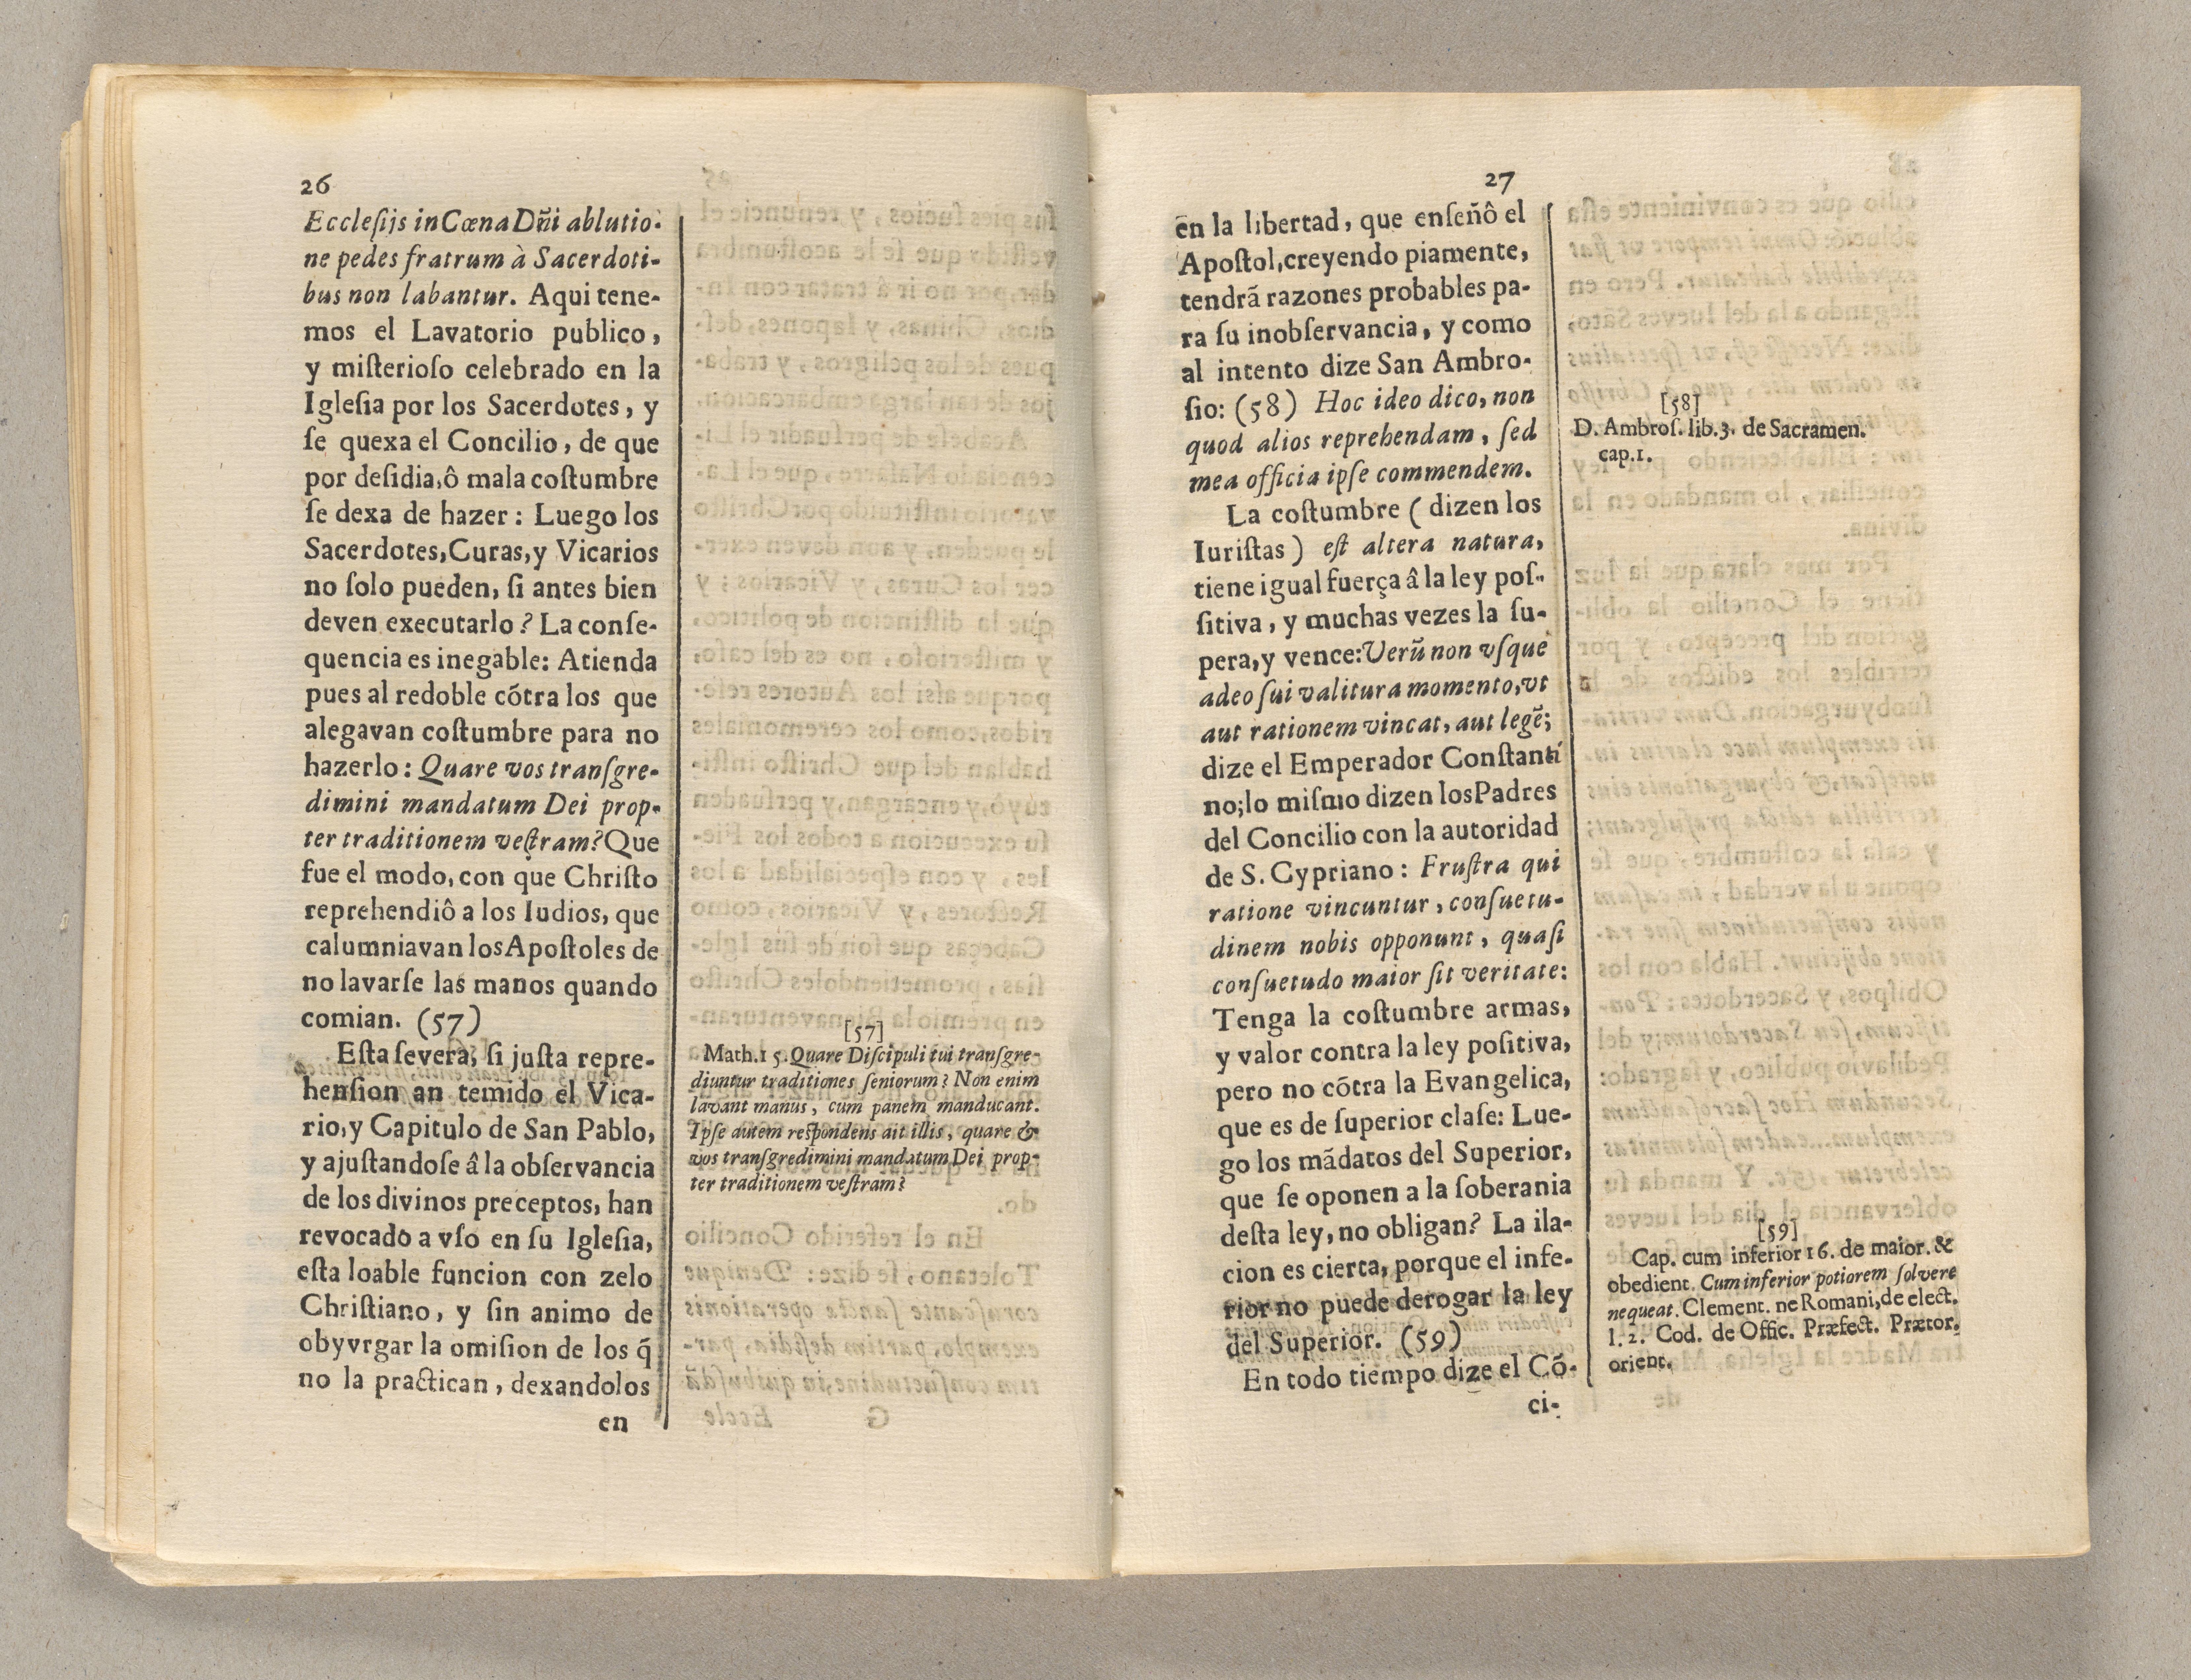 26
Eccleſijs in Cœna Dñi ablutio-
ne pedes fratrum à Sacerdoti-
bus non labantur. Aqui tene-
mos el Lavatorio publico,
y miſterioſo celebrado en la
Igleſia por los Sacerdotes, y
ſe quexa el Concilio, de que
por deſidia, ô mala coſtumbre
ſe dexa de hazer: Luego los
Sacerdotes, Curas, y Vicarios
no ſolo pueden, ſi antes bien
deven executarlo? La conſe-
quencia es inegable: Atienda
pues al redoble cõtra los que
alegavan coſtumbre para no
hazerlo: Quare vos tranſgre-
dimini mandatum Dei prop-
ter traditionem veſtram? Que
fue el modo, con que Chriſto
reprehendiô a los Iudios, que
calumniavan los Apoſtoles de
no lavarſe las manos quando
comian. (57)
Eſta ſevera, ſi juſta repre-
henſion an temido el Vica-
rio, y Capitulo de San Pablo,
y ajuſtandoſe â la obſervancia
de los divinos preceptos, han
revocado a vſo en ſu Igleſia,
eſta loable funcion con zelo
Chriſtiano, y ſin animo de
obyvrgar la omiſion de los q̃
no la practican, dexandolos
en
[57]
Math. 15. Quare Diſcipuli tui tranſgre-
diuntur traditiones ſeniorum? Non enim
lavant manus, cum panem manducant.
Ipſe autem reſpondens ait illis, quare &
vos tranſgredimini mandatum Dei prop-
ter traditionem veſtram?
27
en la libertad, que enſeñô el
Apoſtol, creyendo piamente,
tendrã razones probables pa-
ra ſu inobſervancia, y como
al intento dize San Ambro-
ſio: (58) Hoc ideo dico, non
quod alios reprehendam, ſed
mea officia ipſe commendem.
La coſtumbre (dizen los
Iuriſtas) eſt altera natura,
tiene igual fuerça â la ley poſ-
ſitiva, y muchas vezes la ſu-
pera, y vence: Verũ non vſque
adeo ſui valitura momento, vt
aut rationem vincat, aut legẽ;
dize el Emperador Conſtanti
no; lo miſmo dizen los Padres
del Concilio con la autoridad
de S. Cypriano: Fruſtra qui
ratione vincuntur, conſuetu-
dinem nobis opponunt, quaſi
conſuetudo maior ſit veritate:
Tenga la coſtumbre armas,
y valor contra la ley poſitiva,
pero no cõtra la Evangelica,
que es de ſuperior claſe: Lue-
go los mãdatos del Superior,
que ſe oponen a la ſoberania
deſta ley, no obligan? La ila-
cion es cierta, porque el infe-
rior no puede derogar la ley
del Superior. (59)
En todo tiempo dize el Cõ-
ci-
[58]
D. Ambroſ. lib. 3. de Sacramen.
cap. 1.
[59]
Cap. cum inferior 16. de maior. &
obedient. Cum inferior potiorem ſolvere
nequeat. Clement. ne Romani, de elect.
l. 2. Cod. de Offic. Præfect. Prætor.
orient.